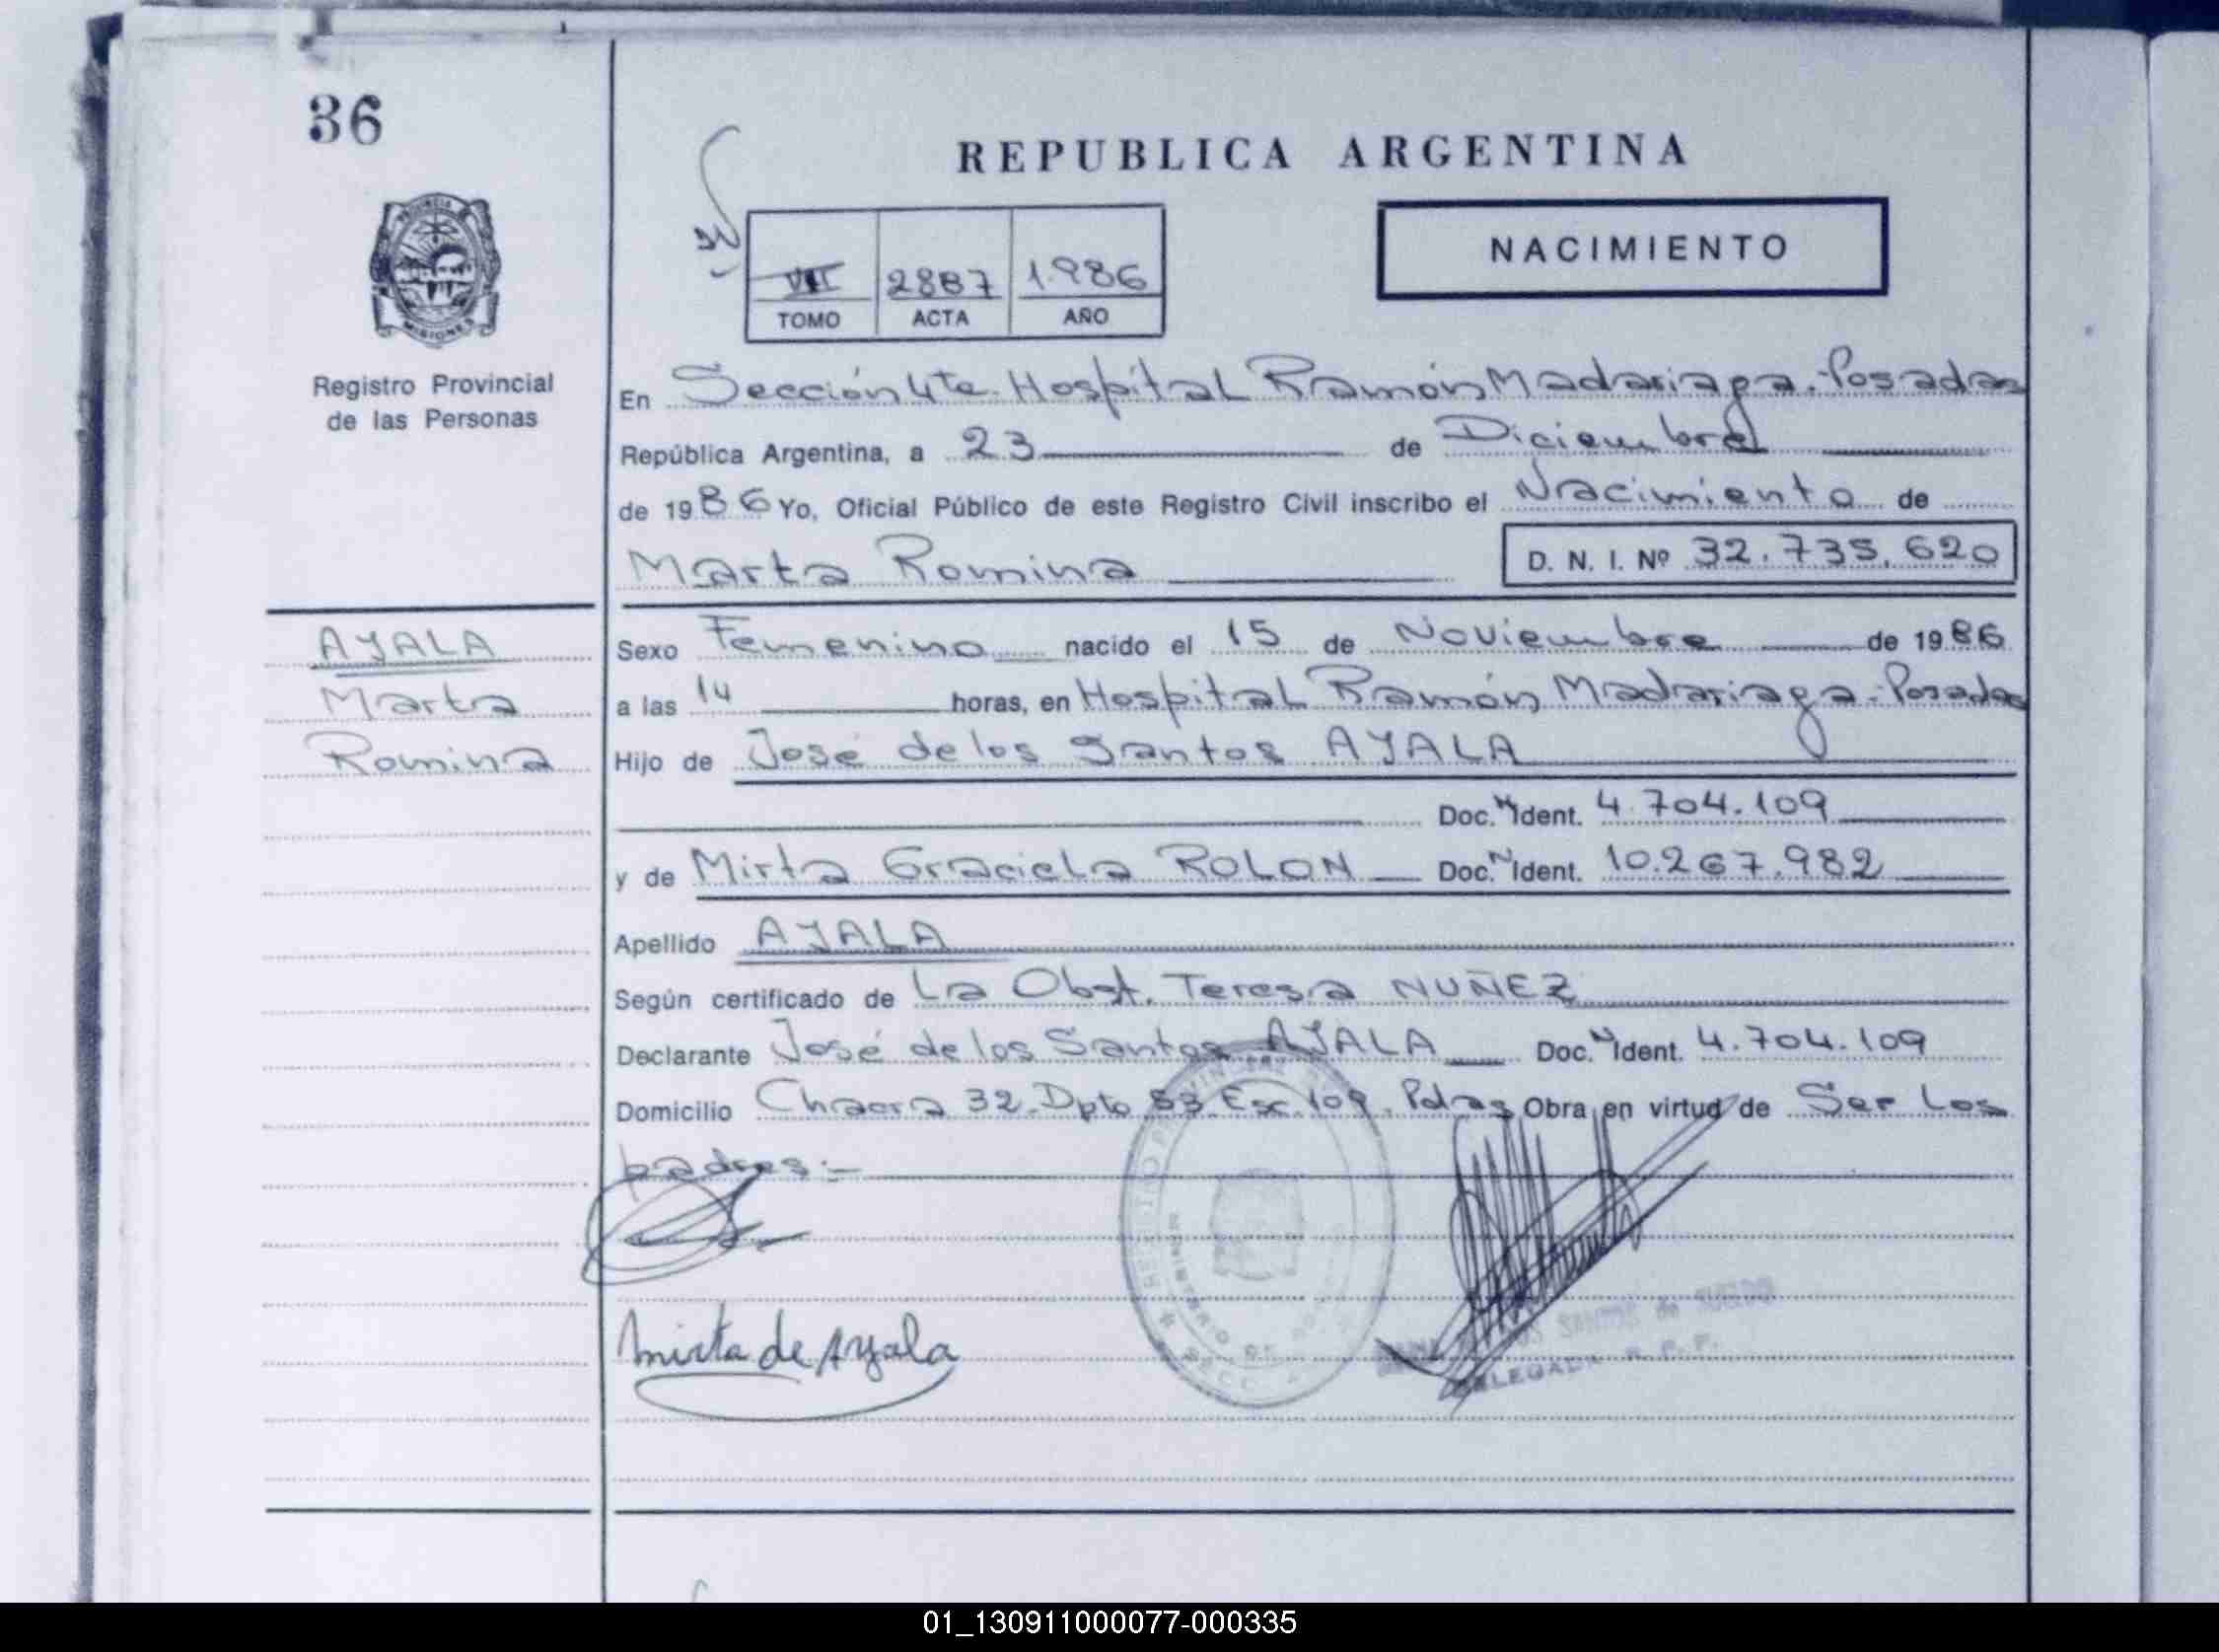 36
REPUBLICA ARGENTINA
NACIMIENTO
2887 1.986
TOMO ACTA AÑO
PROVINCIA
MISIONES
Registro Provincial
de las Personas
En Sección 4ta. Hospital Ramón Madariaga.-Posadas
República Argentina, a 23 de Diciembre
de 1986 Yo, Oficial Público de este Registro Civil inscribo el Nacimiento de
Marta Romina D. N. I. Nº 32.735.620
AYALA
Marta
Romina
Sexo Femenino nacido el 15 de Noviembre de 1986
a las 14 horas, en Hospital Ramón Madariaga.-Posadas
Hijo de José de los Santos AYALA
Doc. Ident. 4.704.109
y de Mirta Graciela ROLON Doc. Ident. 10.267.982
Apellido AYALA
Según certificado de La Obst. Teresa NUÑEZ
Declarante José de los Santos AYALA Doc. Ident. 4.704.109
Domicilio Chacra 32-Dpto 53-Esc.109. Pdas Obra en virtud de Ser los
padres:-
REGISTRO PROVINCIAL
SANTOS de
Mirta de Ayala
01_130911000077-000335